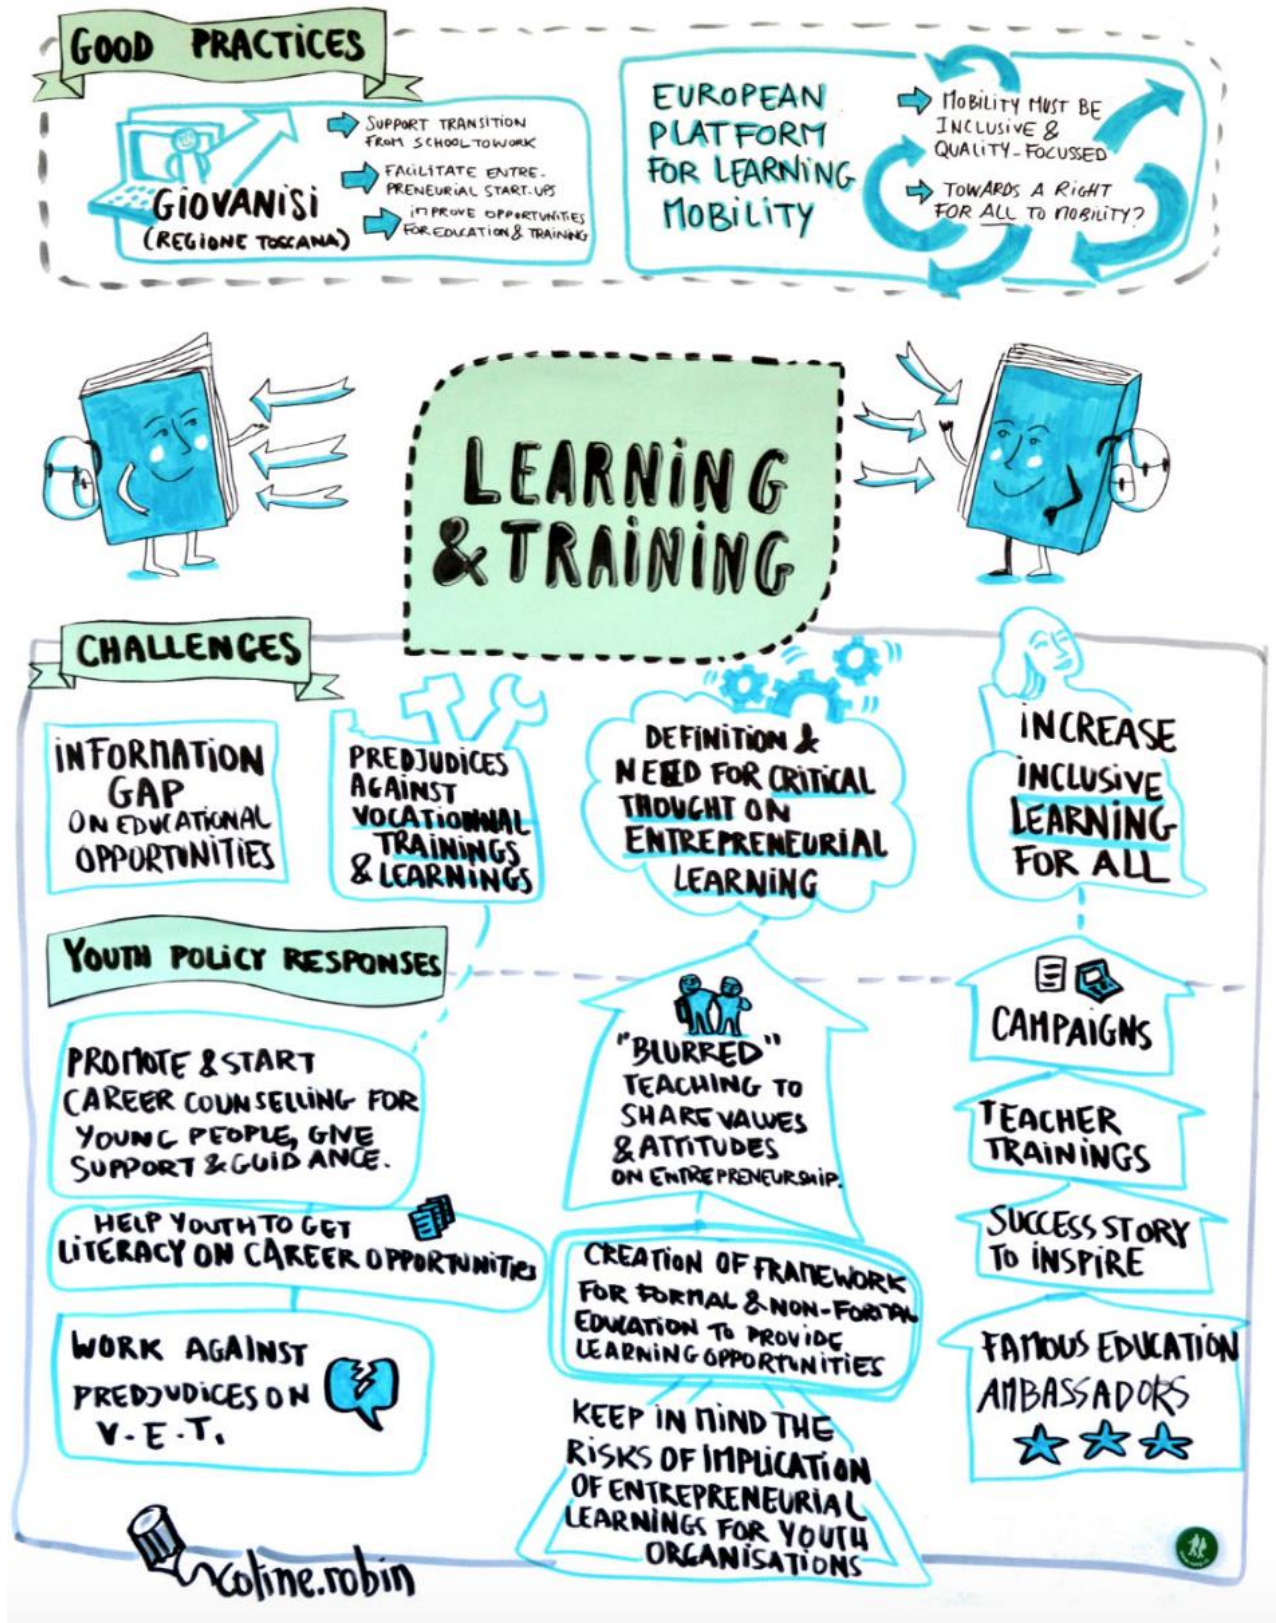 GOOD PRACTICES
GIOVANISI
(REGIONE TOSCANA)
SUPPORT TRANSITION
FROM SCHOOL TO WORK
FACILITATE ENTRE-
PRENEURIAL START-UPS
IMPROVE OPPORTUNITIES
FOR EDUCATION & TRAINING
EUROPEAN
PLATFORM
FOR LEARNING
MOBILITY
MOBILITY MUST BE
INCLUSIVE &
QUALITY-FOCUSSED
TOWARDS A RIGHT
FOR ALL TO MOBILITY?
LEARNING
& TRAINING
CHALLENGES
INFORMATION
GAP
ON EDUCATIONAL
OPPORTUNITIES
PREDJUDICES
AGAINST
VOCATIONNAL
TRAININGS
& LEARNINGS
DEFINITION &
NEED FOR CRITICAL
THOUGHT ON
ENTREPRENEURIAL
LEARNING
INCREASE
INCLUSIVE
LEARNING
FOR ALL
YOUTH POLICY RESPONSES
PROMOTE & START
CAREER COUNSELLING FOR
YOUNG PEOPLE, GIVE
SUPPORT & GUIDANCE.
HELP YOUTH TO GET
LITERACY ON CAREER OPPORTUNITIES
WORK AGAINST
PREDJUDICES ON
V.E.T.
"BLURRED"
TEACHING TO
SHARE VALUES
& ATTITUDES
ON ENTREPRENEURSHIP.
CREATION OF FRAMEWORK
FOR FORMAL & NON-FORMAL
EDUCATION TO PROVIDE
LEARNING OPPORTUNITIES
KEEP IN MIND THE
RISKS OF IMPLICATION
OF ENTREPRENEURIAL
LEARNINGS FOR YOUTH
ORGANISATIONS
CAMPAIGNS
TEACHER
TRAININGS
SUCCESS STORY
TO INSPIRE
FAMOUS EDUCATION
AMBASSADORS
coline.robin